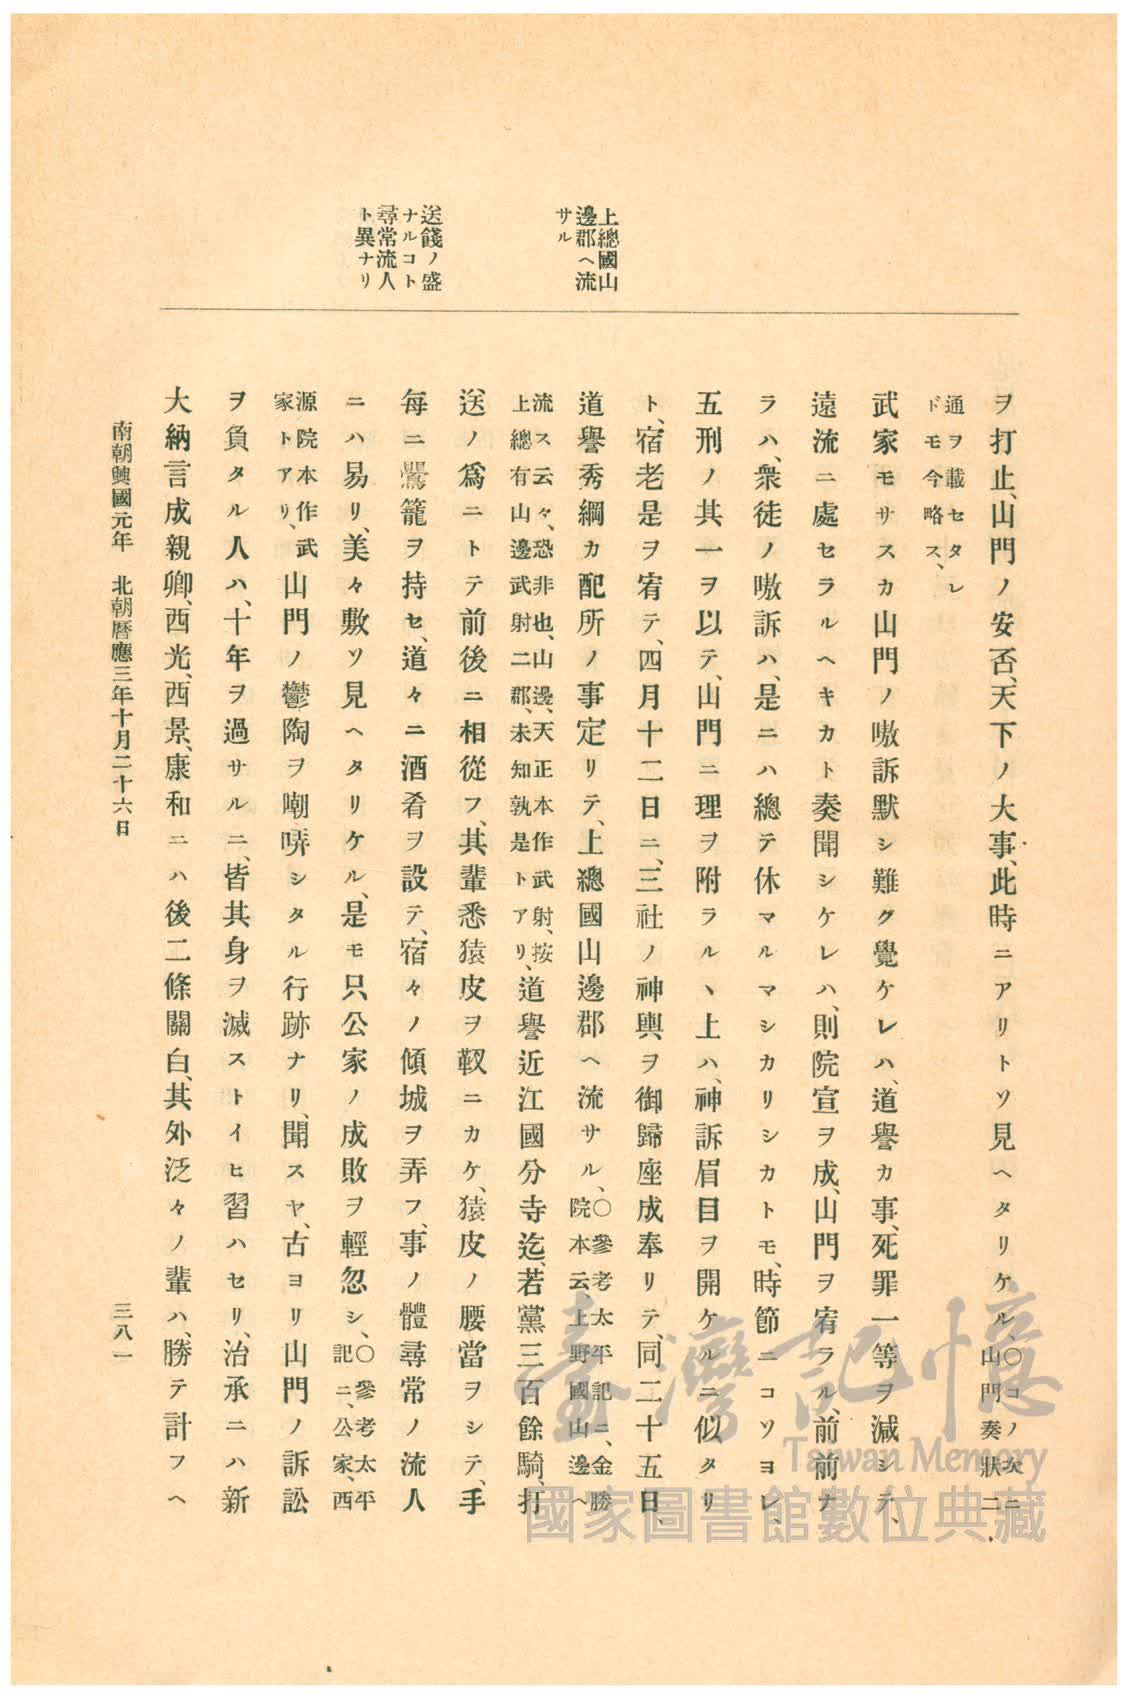 上總國山
邊郡ヘ流
サル
送餞ノ盛
ナルコト
尋常流人
ト異ナリ
ヲ打止、山門ノ安否、天下ノ大事、此時ニアリトソ見ヘタリケル、〇コノ次ニ山門奏狀二
通ヲ載セタレドモ今略ス、
武家モサスカ山門ノ嗷訴默シ難ク覺ケレハ、道譽カ事、死罪一等ヲ減シテ、
遠流ニ處セラルヘキカト奏聞シケレハ、則院宣ヲ成、山門ヲ宥ラル、前前ナ
ラハ、衆徒ノ嗷訴ハ、是ニハ總テ休マルマシカリシカトモ、時節ニコソヨレ、
五刑ノ其一ヲ以テ、山門ニ理ヲ附ラルヽ上ハ、神訴眉目ヲ開ケルニ似タリ
ト、宿老是ヲ宥テ、四月十二日ニ、三社ノ神輿ヲ御歸座成奉リテ、同二十五日、
道譽秀綱カ配所ノ事定リテ、上總國山邊郡ヘ流サル、〇參考太平記ニ、金勝院本云上野國山邊ヘ
流ス云々、恐非也、山邊、天正本作武射、按上總有山邊武射二郡、未知孰是トアリ、道譽近江國分寺迄、若黨三百餘騎、打
送ノ爲ニトテ前後ニ相從フ、其輩悉猿皮ヲ靫ニカケ、猿皮ノ腰當ヲシテ、手
每ニ鸎籠ヲ持セ、道々ニ酒肴ヲ設テ、宿々ノ傾城ヲ弄フ、事ノ體尋常ノ流人
ニハ易リ、美々敷ソ見ヘタリケル、是モ只公家ノ成敗ヲ輕忽シ、〇參考太平記ニ、公家、西
源院本作武家トアリ、山門ノ鬱陶ヲ嘲哢シタル行跡ナリ、聞スヤ、古ヨリ山門ノ訴訟
ヲ負タル人ハ、十年ヲ過サルニ、皆其身ヲ滅ストイヒ習ハセリ、治承ニハ新
大納言成親卿、西光、西景、康和ニハ後二條關白、其外泛々ノ輩ハ、勝テ計フヘ
南朝興國元年　北朝曆應三年十月二十六日
三八一
臺灣記憶
Taiwan Memory
國家圖書館數位典藏